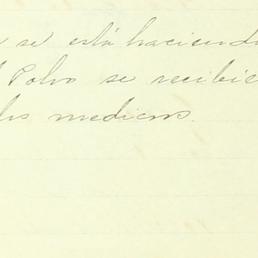 se está haciendo
Polvo se recibie
medicos.